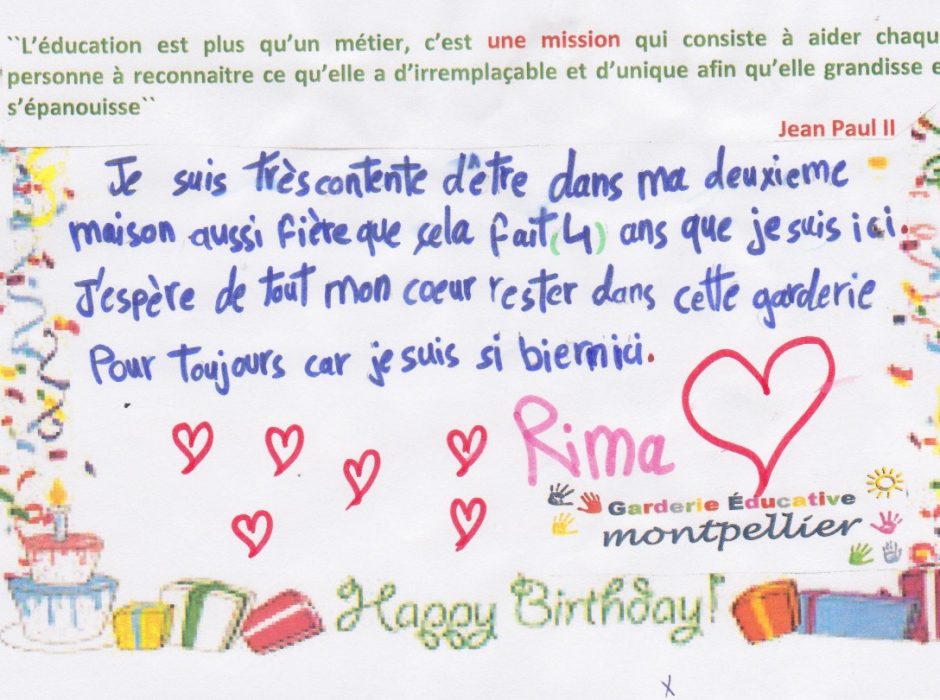 ``L'éducation est plus qu'un métier, c'est une mission qui consiste à aider chaqu
personne à reconnaitre ce qu'elle a d'irremplaçable et d'unique afin qu'elle grandisse e
s'épanouisse``
Jean Paul II
Je suis très contente d'être dans ma deuxieme
maison aussi fière que sela fait (4) ans que je suis ici.
J'espère de tout mon coeur rester dans cette garderie
Pour toujours car je suis si bien ici.
Rima
Garderie Éducative
montpellier
Happy Birthday!
x